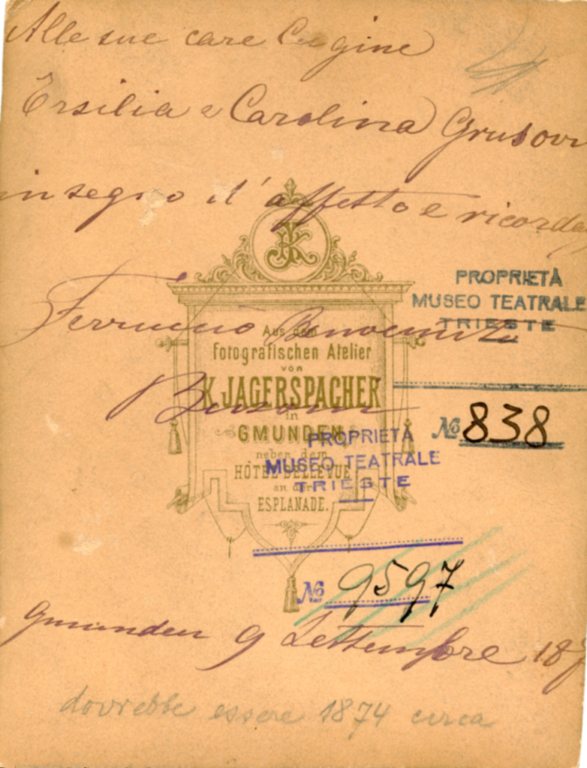 Alle sue care Cugine
Ersilia e Carolina Grusovi
in segno d'affetto e ricorda
PROPRIETÀ
MUSEO TEATRALE
TRIESTE
Ferruccio Benvenuto
Busoni
Aus dem
Fotografischen Atelier
von
K. JAGERSPACHER
in
GMUNDEN
neben dem
HÔTEL BELLEVUE
an der
ESPLANADE.
№ 838
PROPRIETÀ
MUSEO TEATRALE
TRIESTE
№ 9597
Gmunden 9 Settembre 187
dovrebbe essere 1874 circa